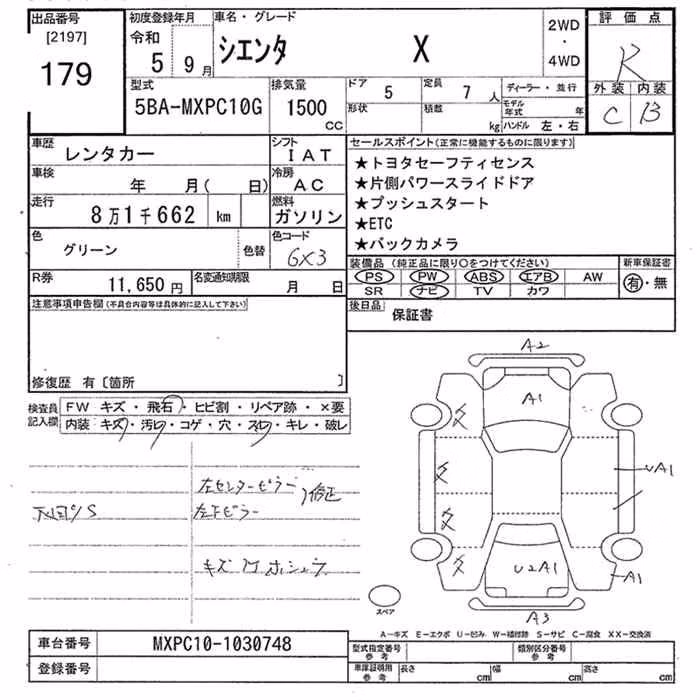 出品番号
[2197]
179
初度登録年月
令和
5 9月
車名・グレード
シエンタ X
2WD
・
4WD
評価点
R
外装 内装
C B
型式
5BA-MXPC10G
排気量
1500
CC
ドア 5
定員 7 人
形状
積数 kg
ディーラー・並行
モデル年式 年
ハンドル 左・右
車歴
レンタカー
シフト
IAT
車検
年 月( 日)
冷房
AC
走行
8万1千662 km
燃料
ガソリン
色
グリーン
色替
色コード
6X3
R券
11,650円
名変通知期限
月 日
セールスポイント(正常に機能するものに限ります)
★トヨタセーフティセンス
★片側パワースライドドア
★プッシュスタート
★ETC
★バックカメラ
装備品(純正品に限り○をつけてください)
PS PW ABS エアB AW
SR ナビ TV カワ
新車保証書
有・無
後日品
保証書
注意事項申告欄(不具合内容等は具体的に記入して下さい)
修復歴 有〔箇所 〕
検査員
記入欄
FW キズ・飛石・ヒビ割・リペア跡・×要
内装 キズ・汚レ・コゲ・穴・スレ・キレ・破レ
下回りS
左センターピラー
左Fピラー
修正
キズ 凹 ホシュウ
A2
A1
UA1
U2A1
A1
A3
スペア
A-キズ E-エクボ U-凹み W-補修跡 S-サビ C-腐食 XX-交換済
車台番号
MXPC10-1030748
登録番号
型式指定番号
参考
類別区分番号
参考
車庫証明用
参考
長さ cm
幅 cm
高さ cm